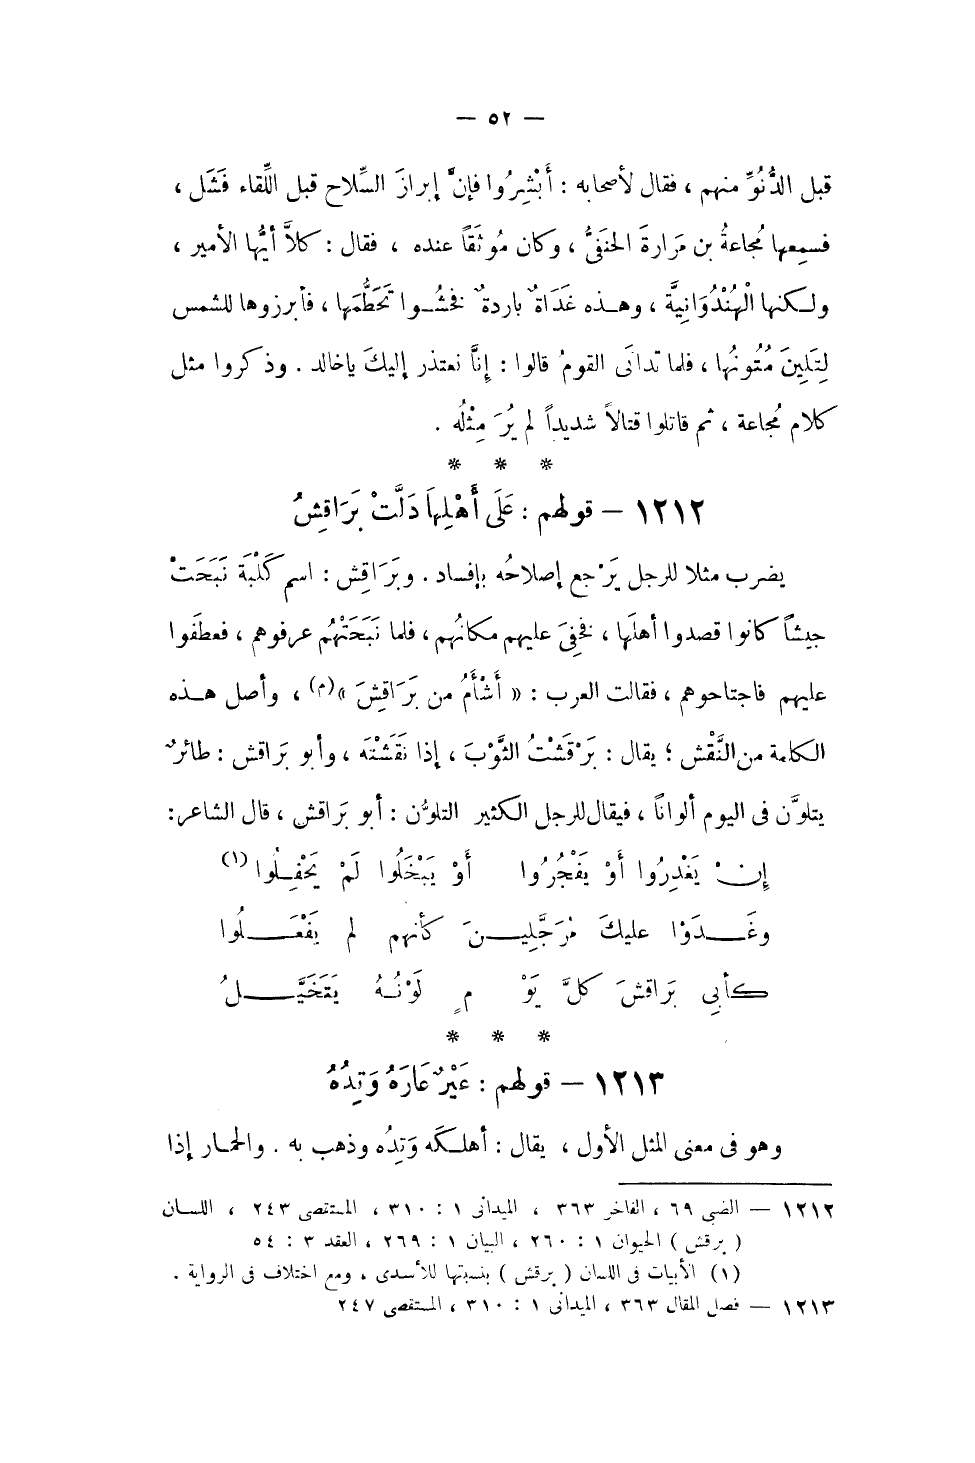 — ٥٢ —
قبل الدُّنُوِّ منهم ، فقال لأصحابه : أَبْشِرُوا فإنَّ إبرازَ السِّلاح قبل اللِّقاء فَشَل ،
فسمِعها مُجاعةُ بن مَرارةَ الحنفيُّ ، وكان مُوثَقاً عنده ، فقال : كلاَّ أيُّها الأمير ،
ولكنها الْهُنْدُوَانِيَّة ، وهذه غَدَاةٌ باردةٌ فخشُوا تَحَطُّمَها ، فأبرزوها للشمس
لِتَلِينَ مُتُونُها ، فلما تدانَى القومُ قالوا : إنَّا نعتذر إليكَ ياخالد . وذكروا مثل
كلام مُجاعة ، ثم قاتلوا قتالاً شديداً لم يُرَ مِثْلُه .
* * *
١٢١٢ – قولهم : عَلَى أَهْلِهَا دَلَّتْ بَرَاقِشُ
يضرب مثلا للرجل يَرْجع إصلاحُه بإفساد . وبَرَاقِش : اسم كَلْبَة نَبَحَتْ
جيشاً كانوا قصدوا أهلَها ، فخفِىَ عليهم مكانُهم ، فلما نَبَحَتْهُم عرفوهم ، فعطَفوا
عليهم فاجتاحوهم ، فقالت العرب : « أَشْأَمُ من بَرَاقِشَ »(م) ، وأصل هذه
الكلمة من النَّقْش ؛ يقال : بَرْقَشْتُ الثَّوْبَ ، إذا نَقَشْتَه ، وأبو بَراقش : طائرٌ
يتلوَّن فى اليوم ألواناً ، فيقال للرجل الكثير التلوُّن : أبو بَراقش ، قال الشاعر :
إِنْ يَغْدِرُوا أَوْ يَفْجُرُوا أَوْ يَبْخَلُوا لَمْ يَحْفِلُوا (١)
وغَدَوْا عليكَ مُرَجَّلِينَ كأنهم لم يَفْعَلُوا
كأبى بَرَاقشَ كلَّ يَوْمٍ لَوْنُهُ يَتَخَيَّلُ
* * *
١٢١٣ – قولهم : عَيْرٌ عَارَهُ وَتِدُهُ
وهو فى معنى المثل الأول ، يقال : أهلكَه وَتِدُه وذهب به . والحمار إذا
١٢١٢ — الضبى ٦٩ ، الفاخر ٣٦٣ ، الميدانى ١ : ٣١٠ ، المستقصى ٢٤٣ ، اللسان
( برقش ) الحيوان ١ : ٢٦٠ ، البيان ١ : ٢٦٩ ، العقد ٣ : ٥٤
(١) الأبيات فى اللسان ( برقش ) بنسبتها للأسدى ، ومع اختلاف فى الرواية .
١٢١٣ — فصل المقال ٣٦٣ ، الميدانى ١ : ٣١٠ ، المستقصى ٢٤٧